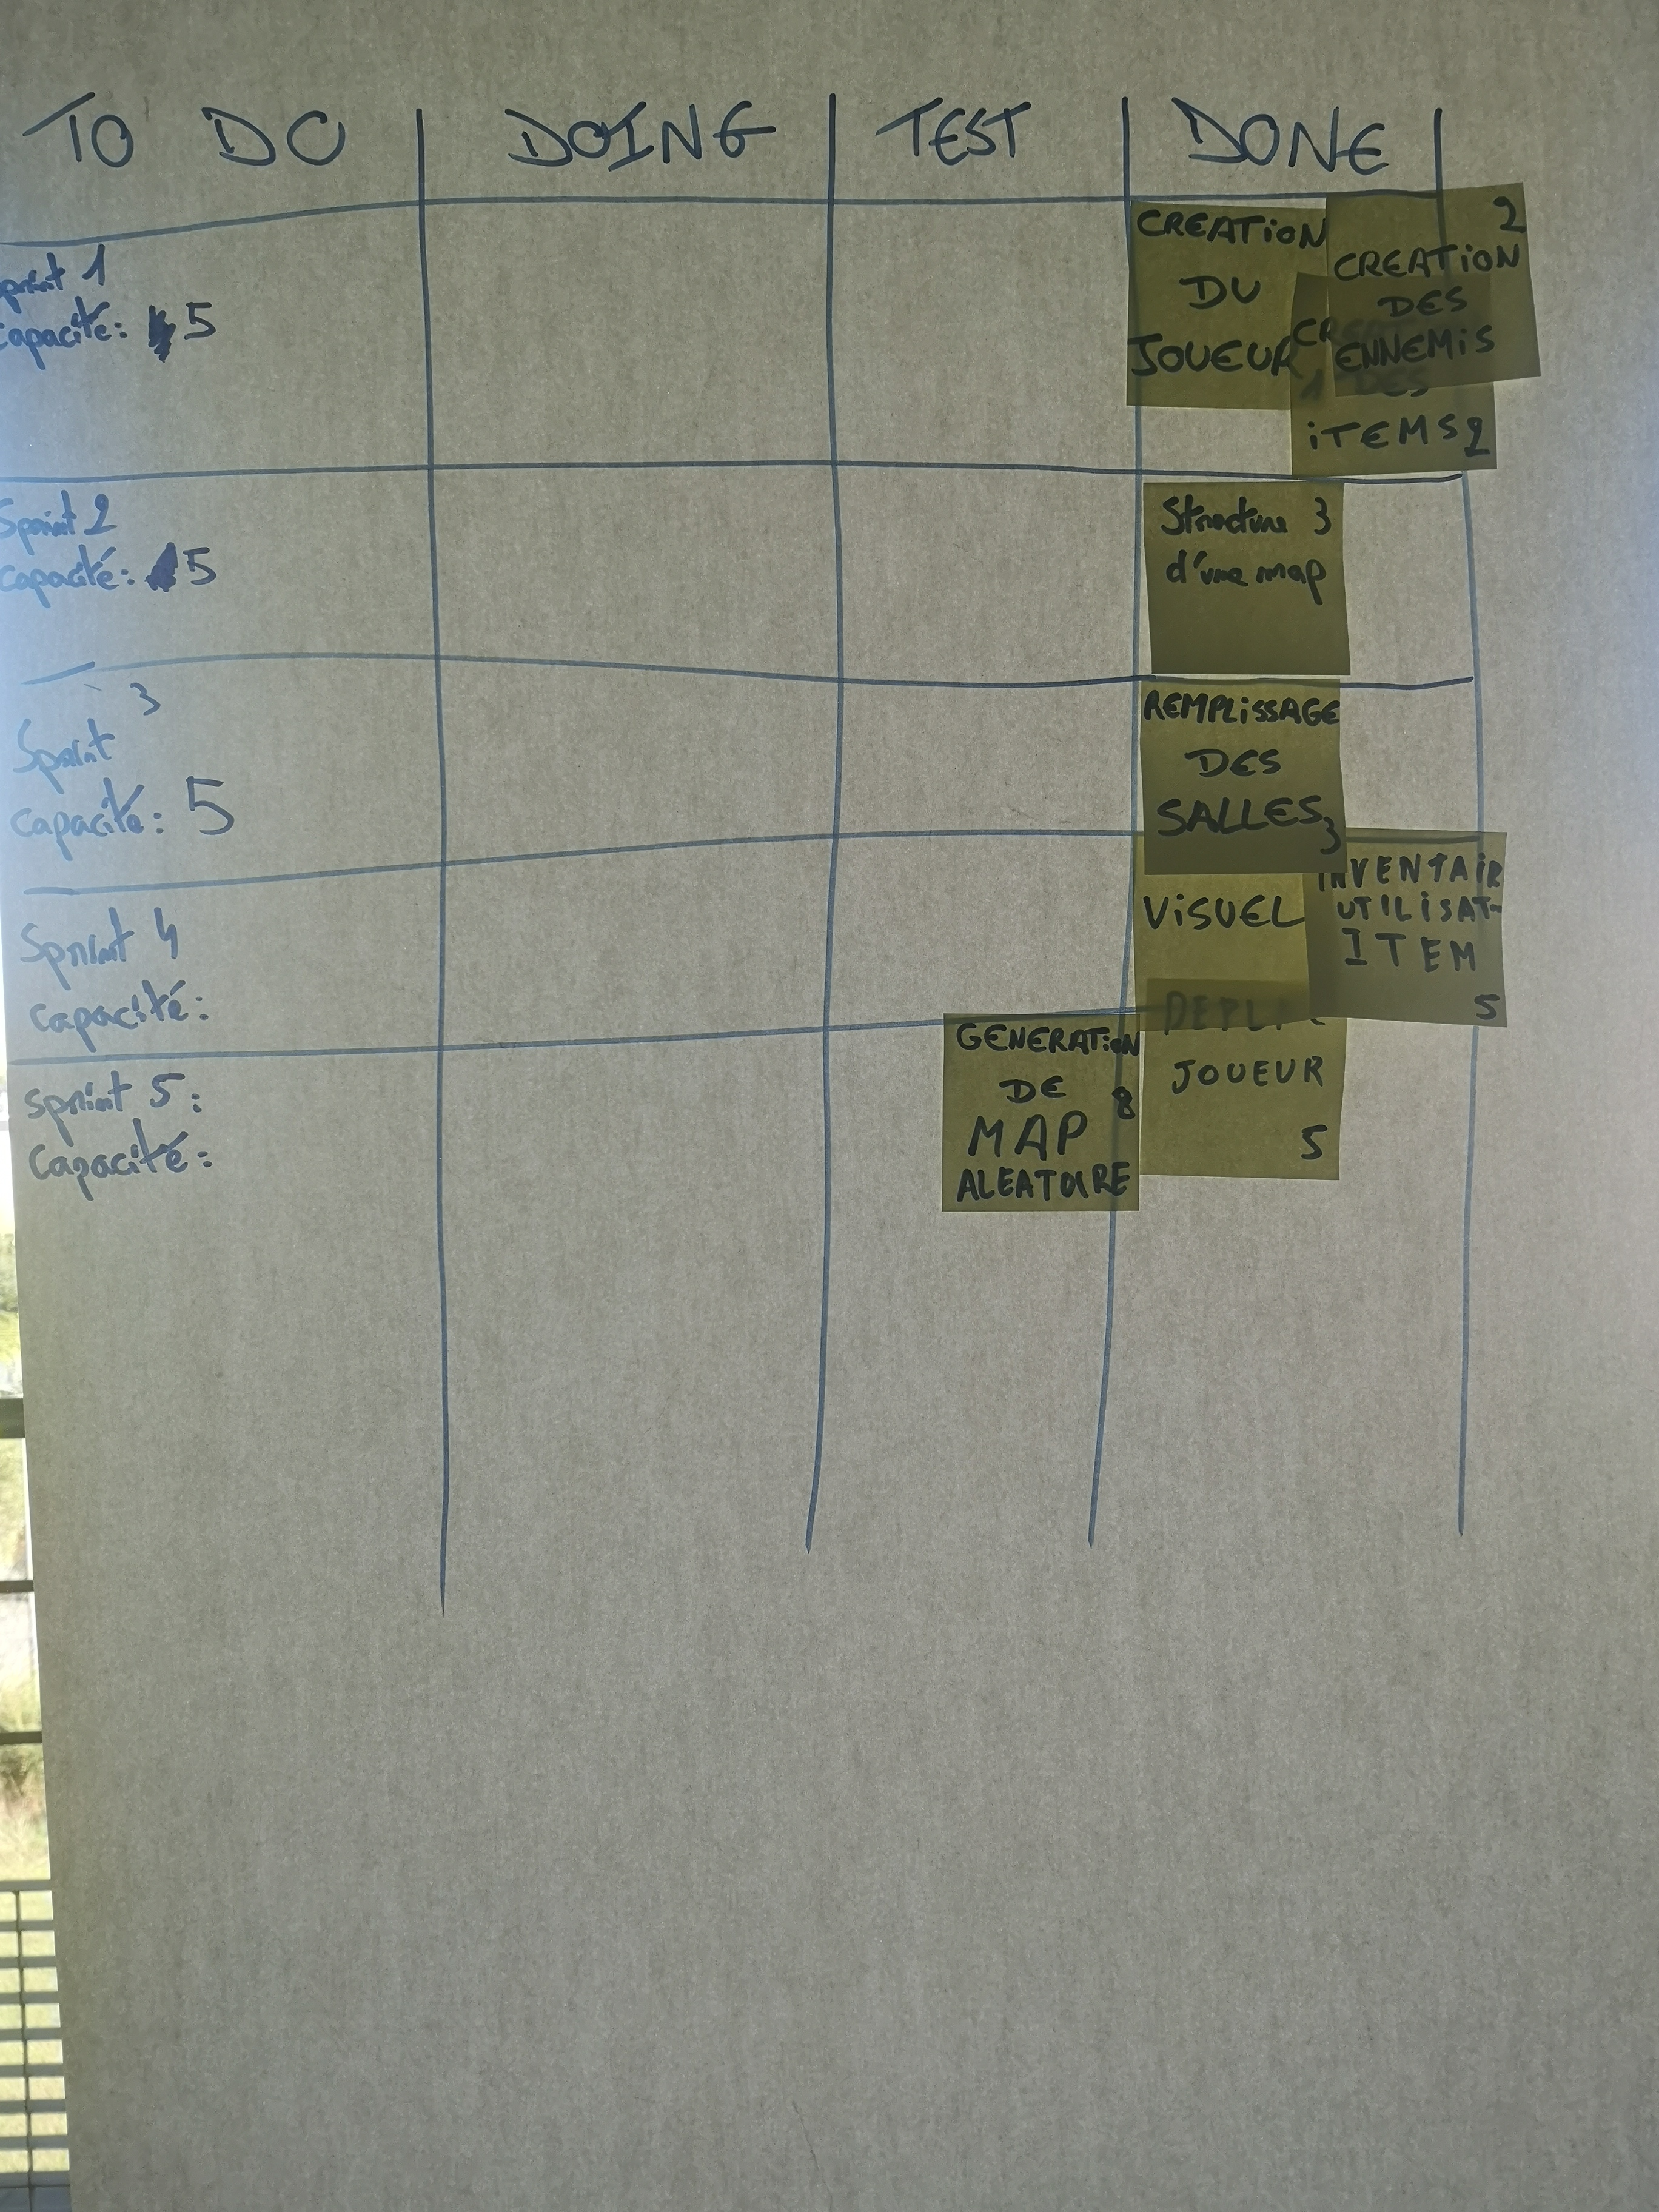 TO DO
DOING
TEST
DONE
Sprint 1
Capacité: 5
CREATION
DU
JOUEUR
1
2
CREATION
DES
ENNEMIS
DES
ITEMS 2
Sprint 2
Capacité: 5
Structure 3
d'une map
3
Sprint
Capacité: 5
REMPLISSAGE
DES
SALLES 3
Sprint 4
Capacité:
VISUEL
INVENTAIR
UTILISAT-
ITEM
5
Sprint 5:
Capacité:
GENERATION
DE 8
MAP
ALEATOIRE
JOUEUR
5